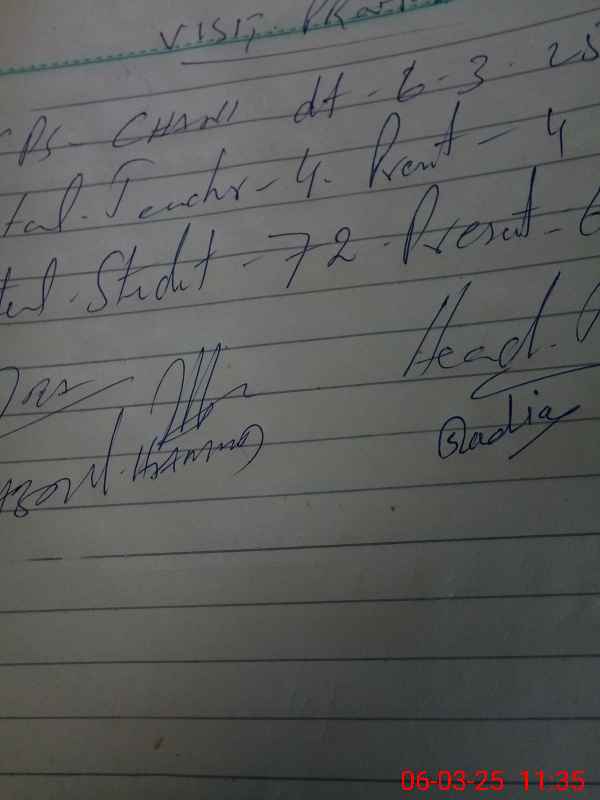 VISIT
PS- CHANI dt - 6-3-25
tal. Teachr - 4. Prent - 4
tal. Stedt - 72. Present - 6
Head.
ABDUL. HAMMID Qadia
06-03-25 11:35